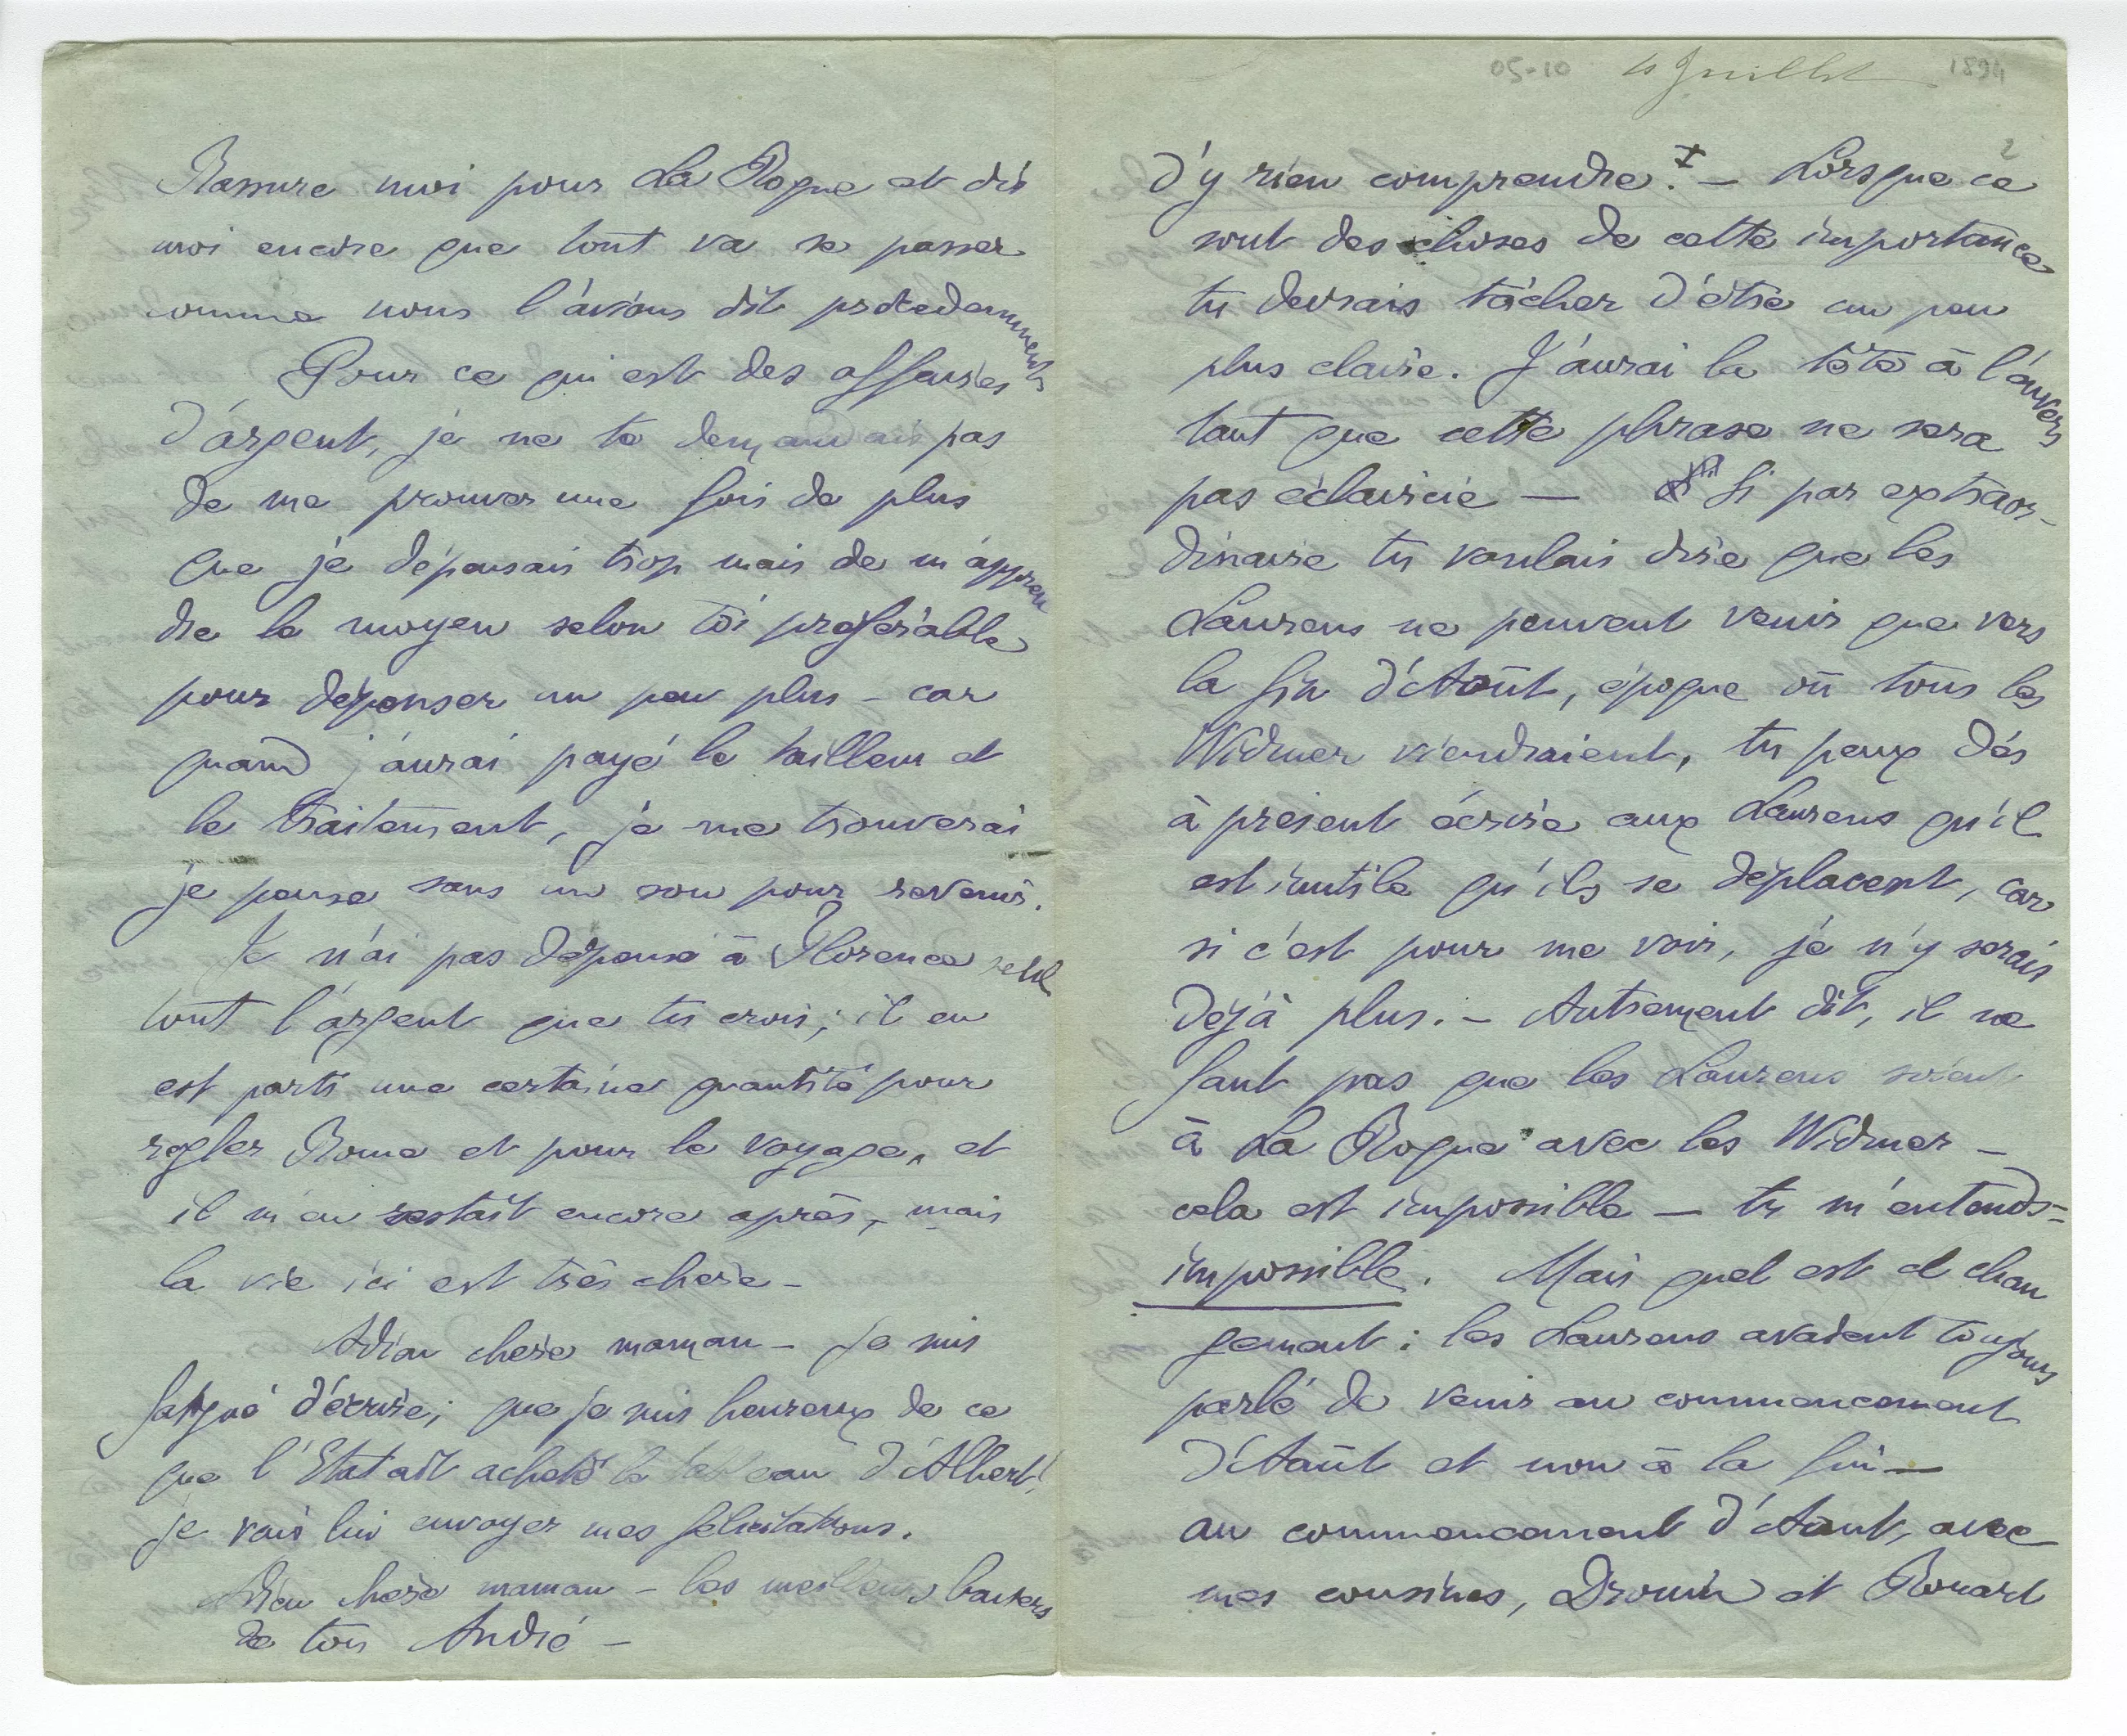 Rassure moi pour La Roque et dis
moi encore que tout va se passer
comme nous l'avions dit précédemment
Pour ce qui est des affaires
d'argent, je ne te demandais pas
de me prouver une fois de plus
que je dépensais trop mais de m'appren
dre le moyen selon toi préférable
pour dépenser un peu plus - car
quand j'aurai payé le tailleur et
le traitement, je me trouverai
je pense sans un sou pour revenir.
Je n'ai pas dépensé à Florence
tout l'argent que tu crois ; il en
est parti une certaine quantité pour
regler Rome et pour le voyage, et
il m'en restait encore après, mais
la vie ici est très chere -
Adieu chere maman - je suis
fatigué d'écrire ; que je suis heureux de ce
que l'Etat ait acheté le tableau d'Albert !
je vais lui envoyer mes félicitations.
Adieu chere maman - les meilleurs baisers
de ton André -
05-10 Juillet 1894
2
d'y rien comprendre. - Lorsque ce
sont des choses de cette importance
tu devrais tâcher d'être un peu
plus claire. J'aurai la tête à l'envers
tant que cette phrase ne sera
pas éclaircie - Si par extraor-
dinaire tu voulais dire que les
Laurens ne peuvent venir que vers
la fin d'Août, époque où tous les
Widmer viendraient, tu peux dés
à présent écrire aux Laurens qu'il
est inutile qu'ils se déplacent, car
si c'est pour me voir, je n'y serais
déjà plus. - Autrement dit, il ne
faut pas que les Laurens soient
à La Roque avec les Widmer -
cela est impossible - tu m'entends =
impossible. Mais quel est ce chan
gement : les Laurens avaient toujours
parlé de venir au commencement
d'Août et non à la fin -
au commencement d'Août, avec
mes cousines, Drouin et Rouart